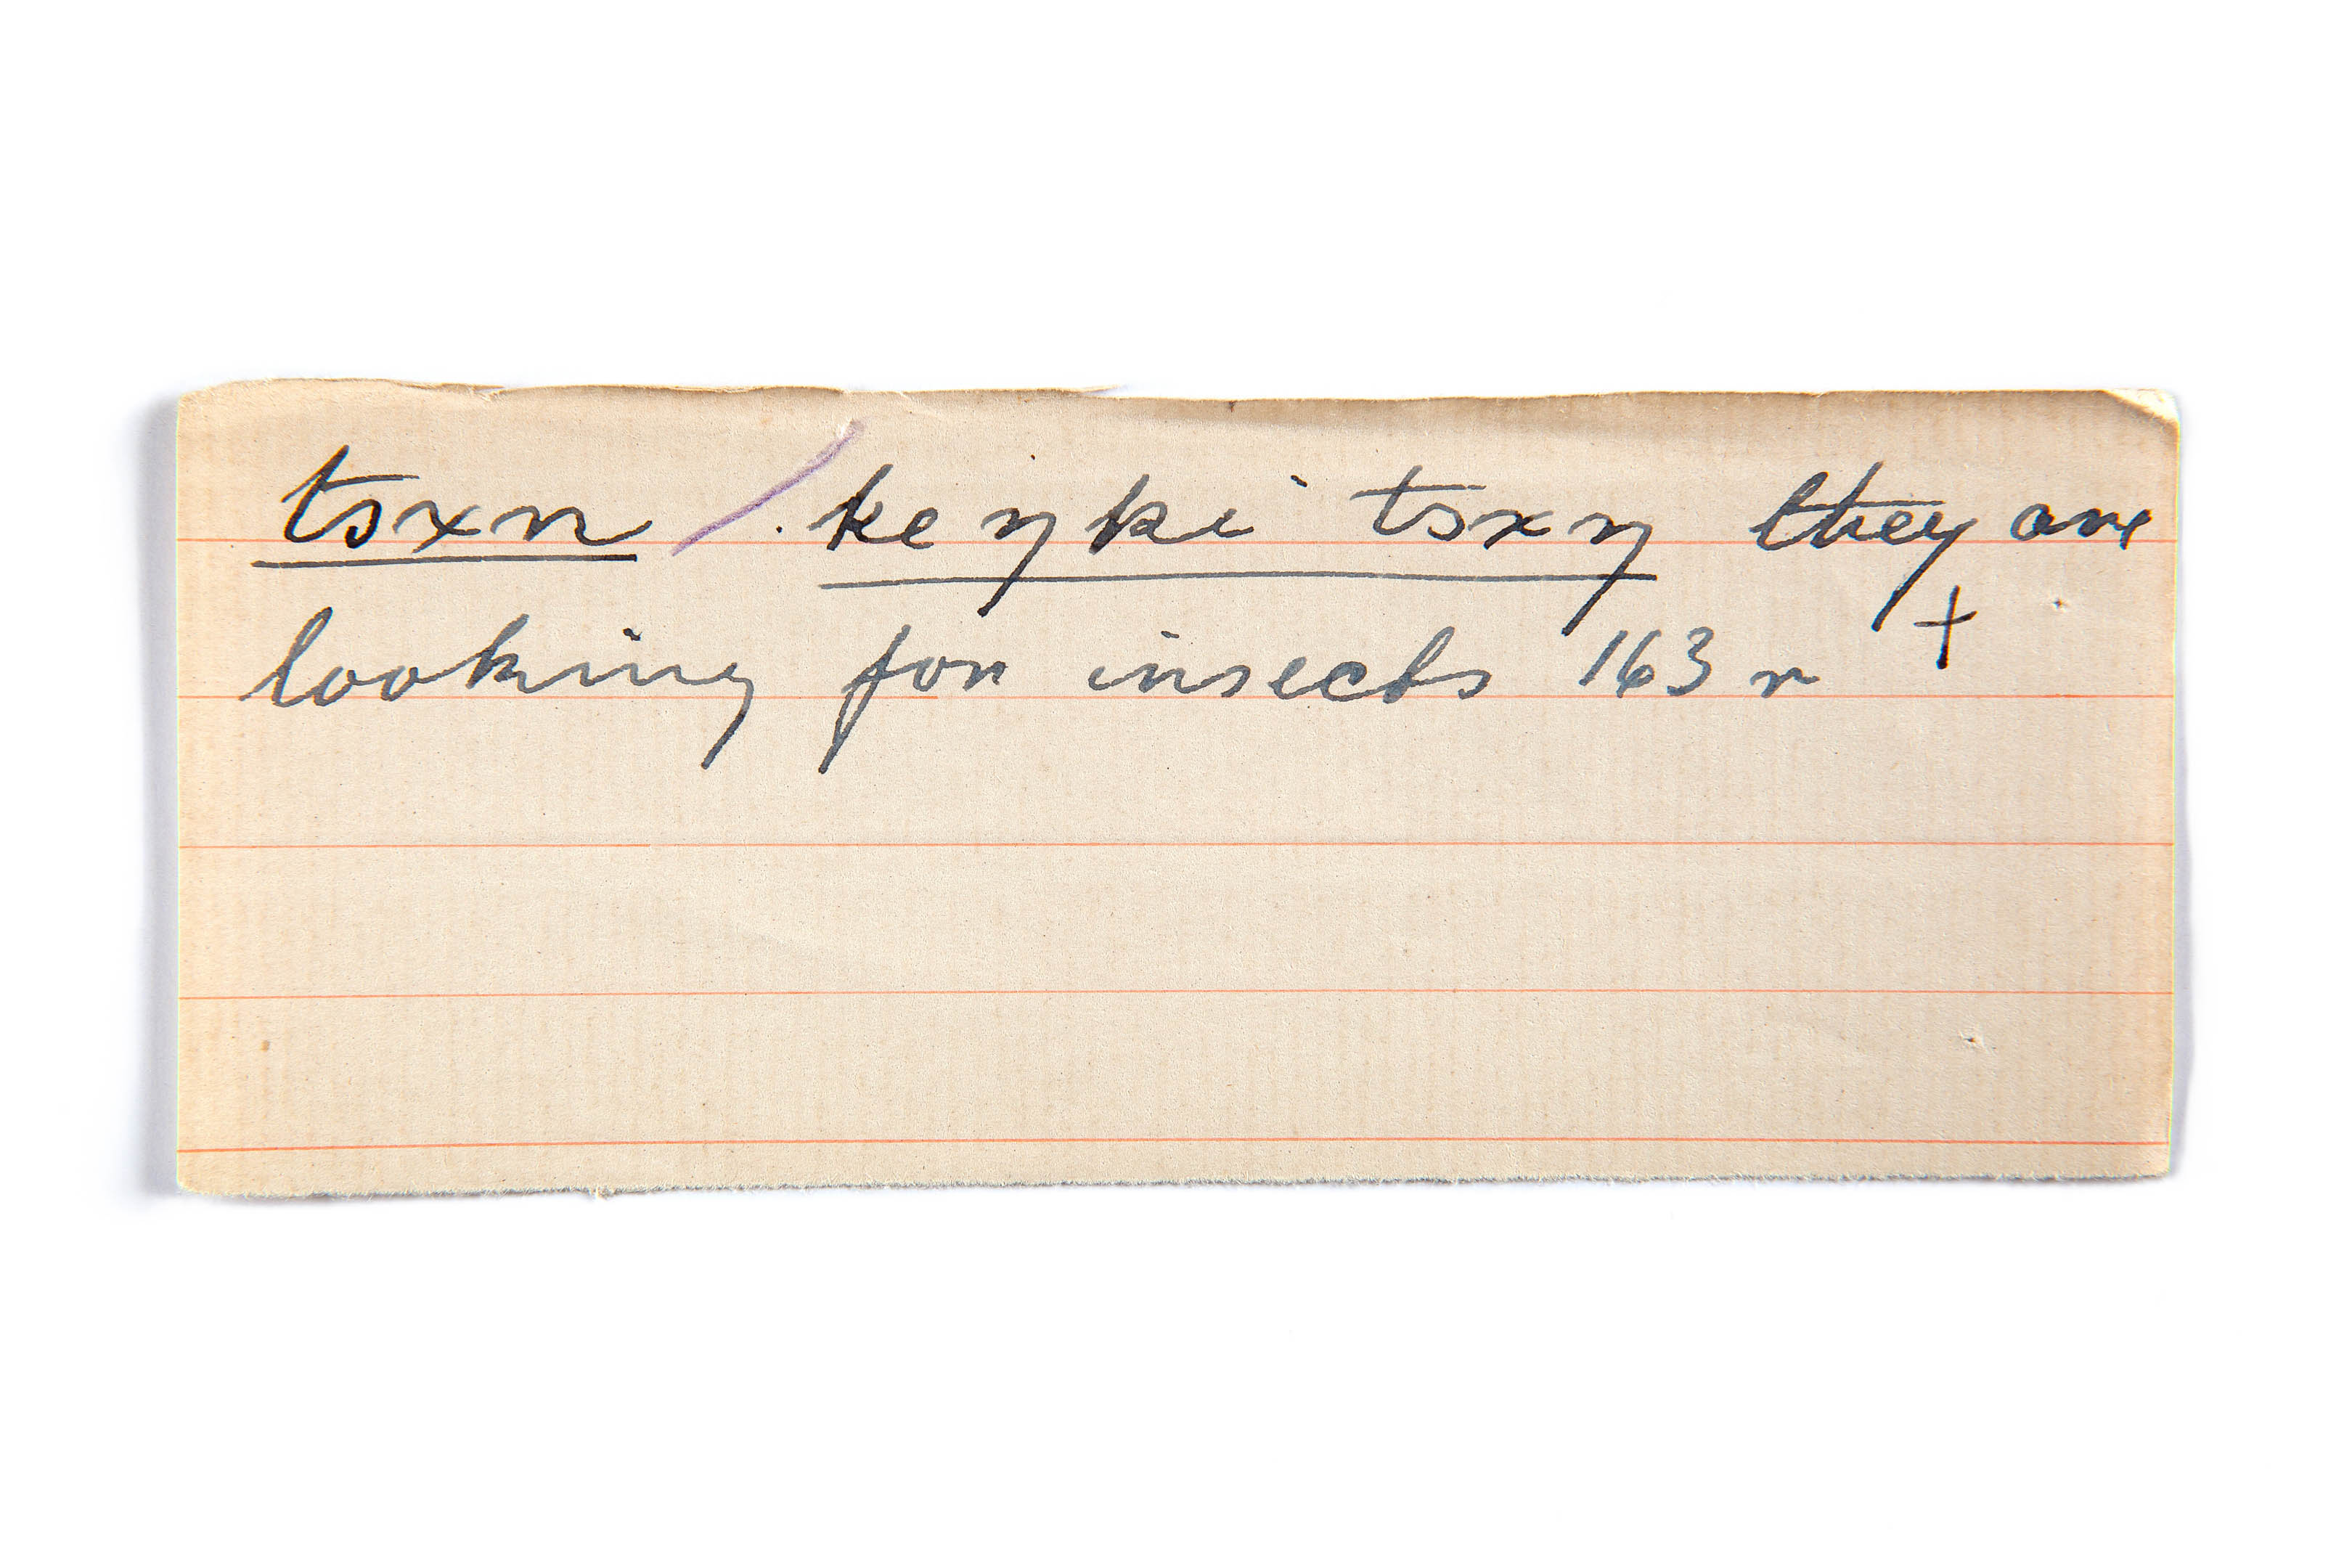 tsxn / keŋki tsxŋ they are
looking for insects 163 r +